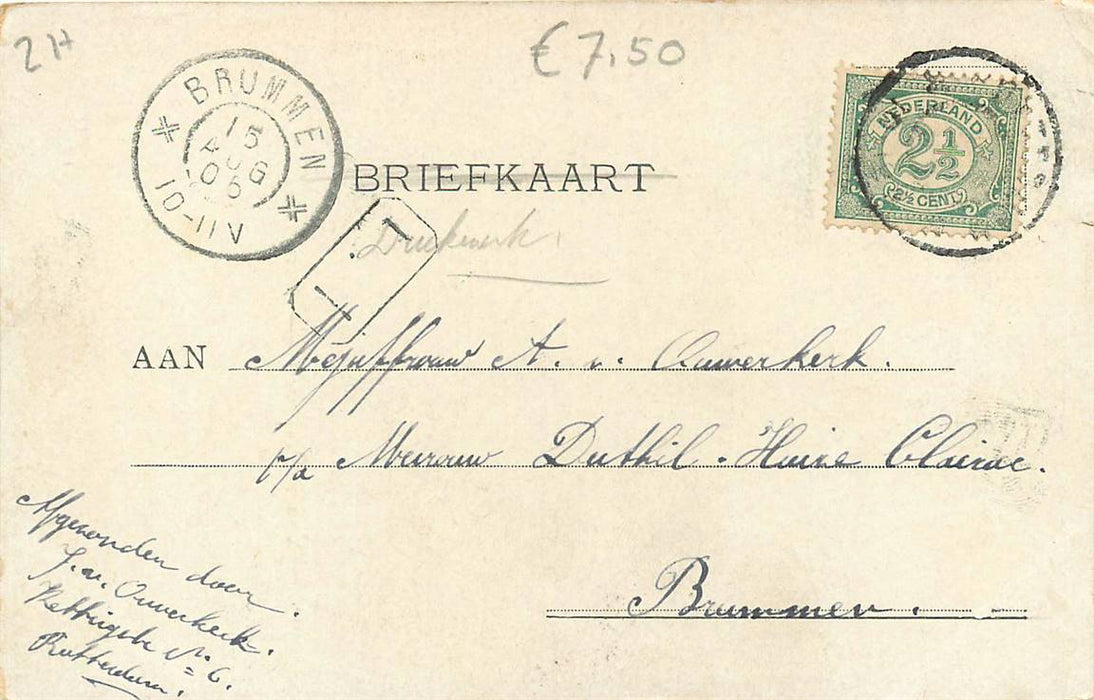 2H
€ 7.50
BRUMMEN
15
AUG
06
10-11V
NEDERLAND
2½
2½ CENT
BRIEFKAART
Drukwerk.
1
AAN Mejuffrouw A. v. Ouwerkerk.
p/a Mevrouw Duthil - Huize Clairac.
Brummen.
Afgezonden door.
J. v. Ouwerkerk.
No 6.
Rotterdam.